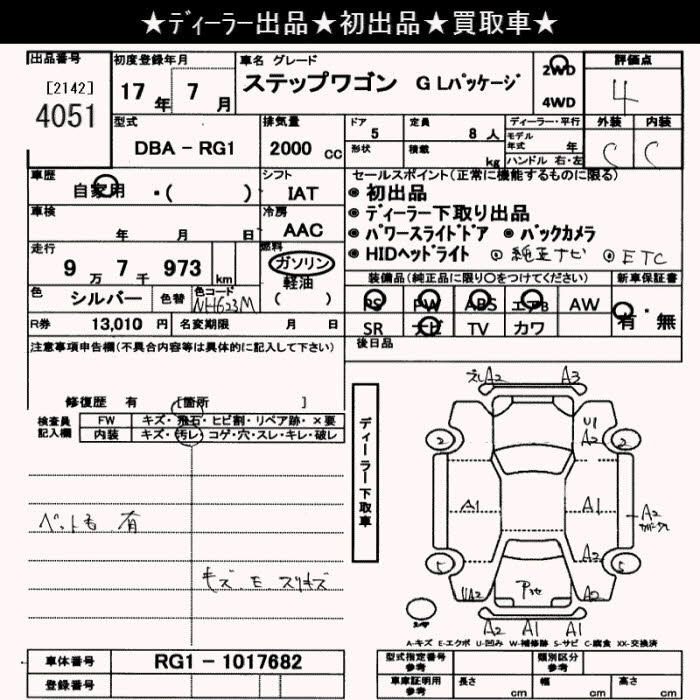 ★ﾃﾞｨｰﾗｰ出品★初出品★買取車★
出品番号 初度登録年月 車名 グレード 評価点
[2142] 17年 7月 ステップワゴン G Lパッケージ 2WD 4
4051 4WD
型式 排気量 ドア 定員 ディーラー・平行 外装 内装
DBA－RG1 2000cc 5 8人 モデル年式 年 C C
形状 積載 kg ハンドル 右・左
車歴 シフト セールスポイント(正常に機能するものに限る)
自家用 ・( ) IAT ◉初出品
車検 冷房 ◉ディーラー下取り出品
年 月 日 AAC ◉パワースライドドア ◉バックカメラ
走行 燃料 ◉HIDヘッドライト ◉純正ナビ ◉ETC
9万7千973km ガソリン 装備品(純正品に限り○をつけてください) 新車保証書
色 シルバー 色替 色コード NH623M 軽油 ( ) PS PW ABS エアB AW 有・無
R券 13,010円 名変期限 月 日 SR ナビ TV カワ
注意事項申告欄(不具合内容等は具体的に記入して下さい) 後日品
修復歴 有 [箇所 ]
検査員記入欄 FW キズ・飛石・ヒビ割・リペア跡・×要
内装 キズ・汚レ・コゲ・穴・スレ・キレ・破レ
ディーラー下取車
A2 A3
U1
2 A2 2
A1 A1 A2
ペットも 有
A2
5 5
キズ、E、スリキズ
UA2 A2
A2 A1 A1
A-キズ E-エクボ U-凹み W-補修跡 S-サビ C-腐食 XX-交換済
車体番号 RG1－1017682 型式指定番号 参考 類別区分 参考
登録番号 車庫証明用 参考 長さ cm 幅 cm 高さ cm